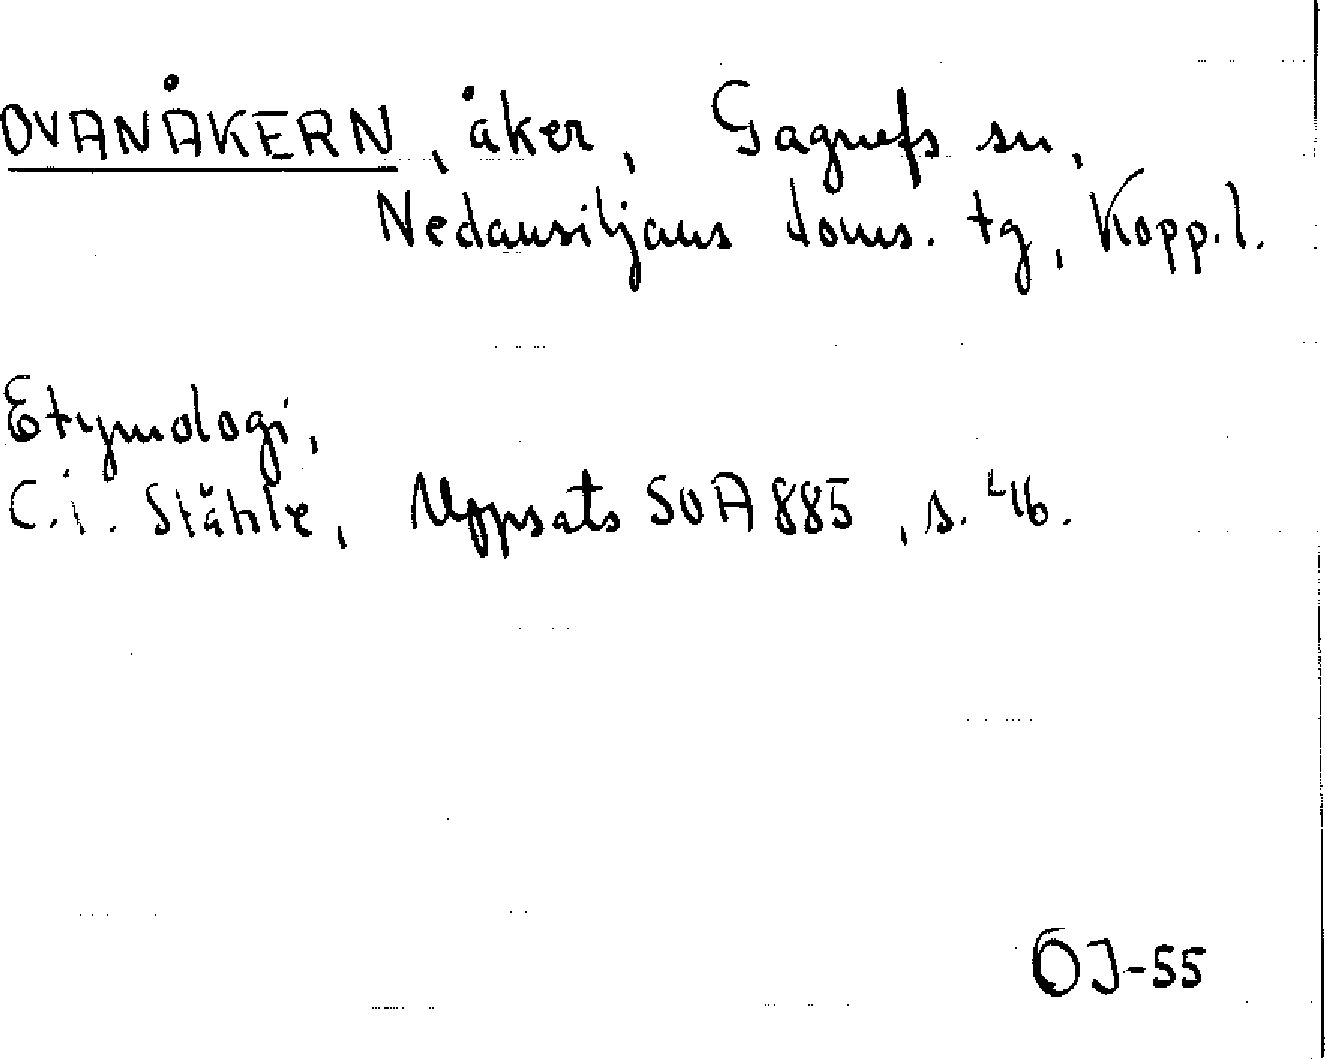 OVANÅKERN, åker, Gagnefs sn,
Nedansiljans doms. tg, Kopp. l.
Etymologi,
C.i. Ståhle, Uppsats SOA 885, s. 46.
OJ-55